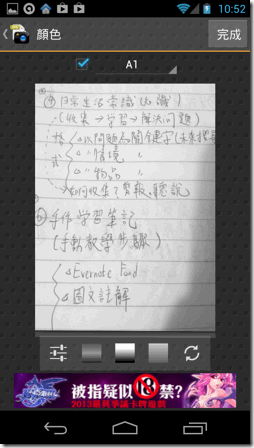 10:52
顏色
完成
A1
④日常生活常識(山識)
(收集→學習→解決問題)
格式
△以問題為關鍵字(未來搜尋
△〃情境〃
△〃物品〃
如何收集?剪報、聽說
⑤手作学習筆記
(手動教學步驟)
△Evernote Food
△圖文註解
被指疑似⑱禁?
2013
卡牌遊戲